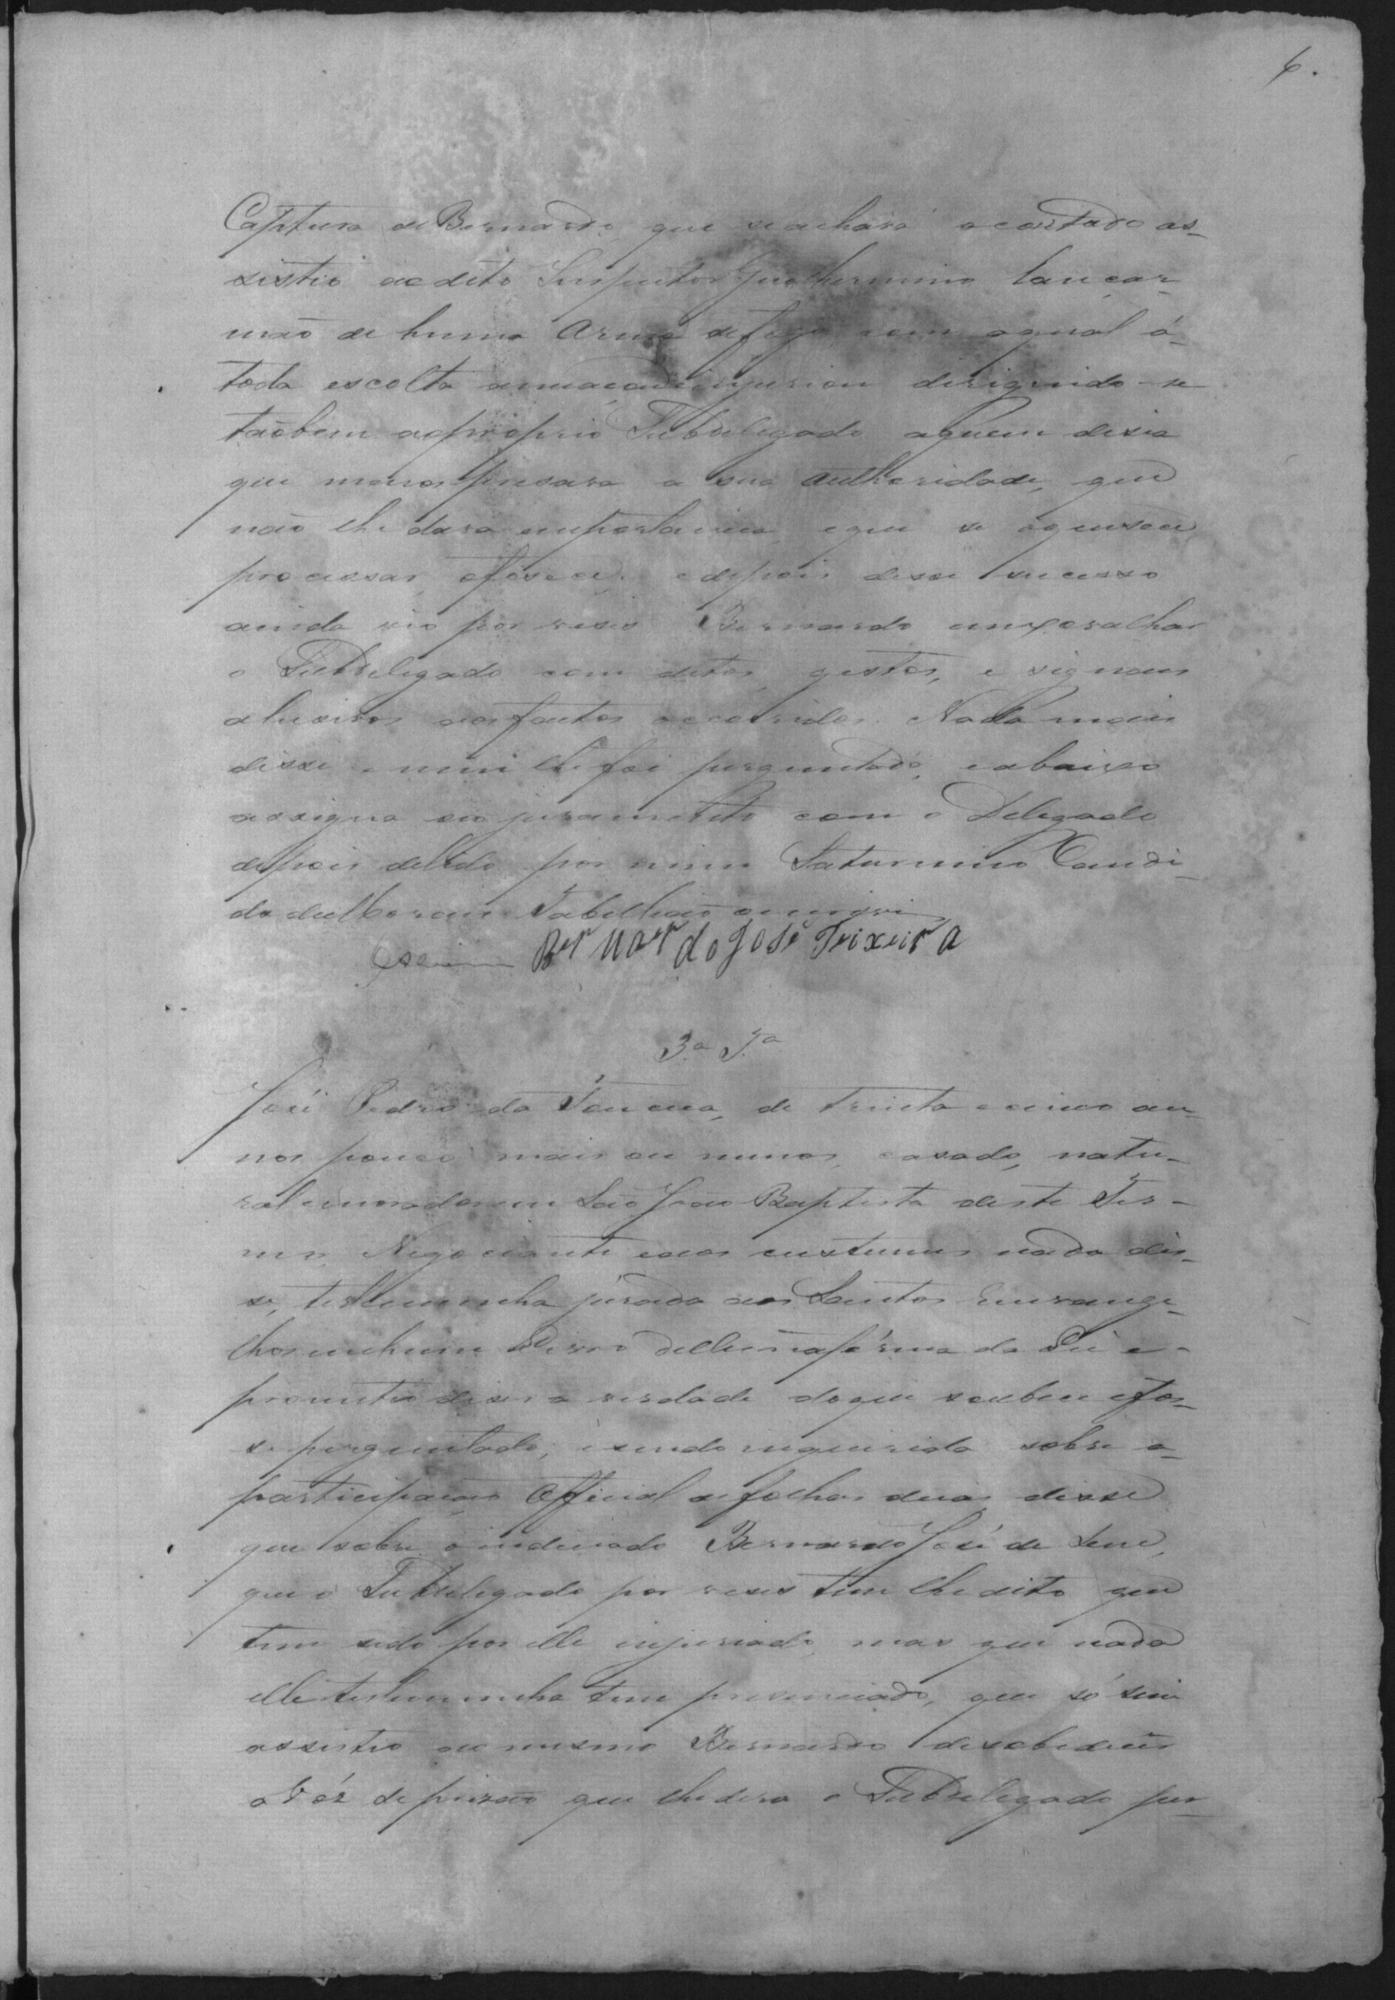 6.
Captura de Bernardo, que se achava acostado as-
sistio ao dito Inspector Guilhermino lançar
mão de huma Arma de fogo com a qual á
toda escolta ameaçou injuriou dirigindo-se
taõbem ao proprio Subdelegado a quem dizia
que menos presava a sua autheridade, que
não lhe dava importancia e que se o quisesse
processar ofisece, e depois desse sucesso
ainda vio por veses Bernardo enxovalhar
o Subdelegado com ditos, gestos, e signaes
alusivos aos factos occorridos. Nada mais
disse e nem lhe foi perguntado, e abaixo
assigna seo juramento com o Delegado
depois de lido por mim Saturnino Candi-
do Tabellião
Bernardo José Teixeira
3.ª T.ª
José Pedro da Fonceca, de trinta e cinco an-
nos pouco mais ou menos, casado, natu-
ral e morador em São João Baptista deste Ter-
mo, Negociante e aos custumes nada dis-
se, testemunha jurada aos Santos Evange-
lhos em hum Livro delles na fórma da Lei e
prometeo diser a verdade do que soubece e fos-
se perguntado, e sendo inquirido sobre a
participação Official de folhas duas disse
que sobre o indiciado Bernardo José de
que o Subdelegado por veses tem lhe dito que
tem sido por elle injuriado, mas que nada
elle testemunha tem presenciado, que só sim
assistio ao mesmo Bernardo desobedecer
a vóz de prizão que lhe dera o Subdelegado por